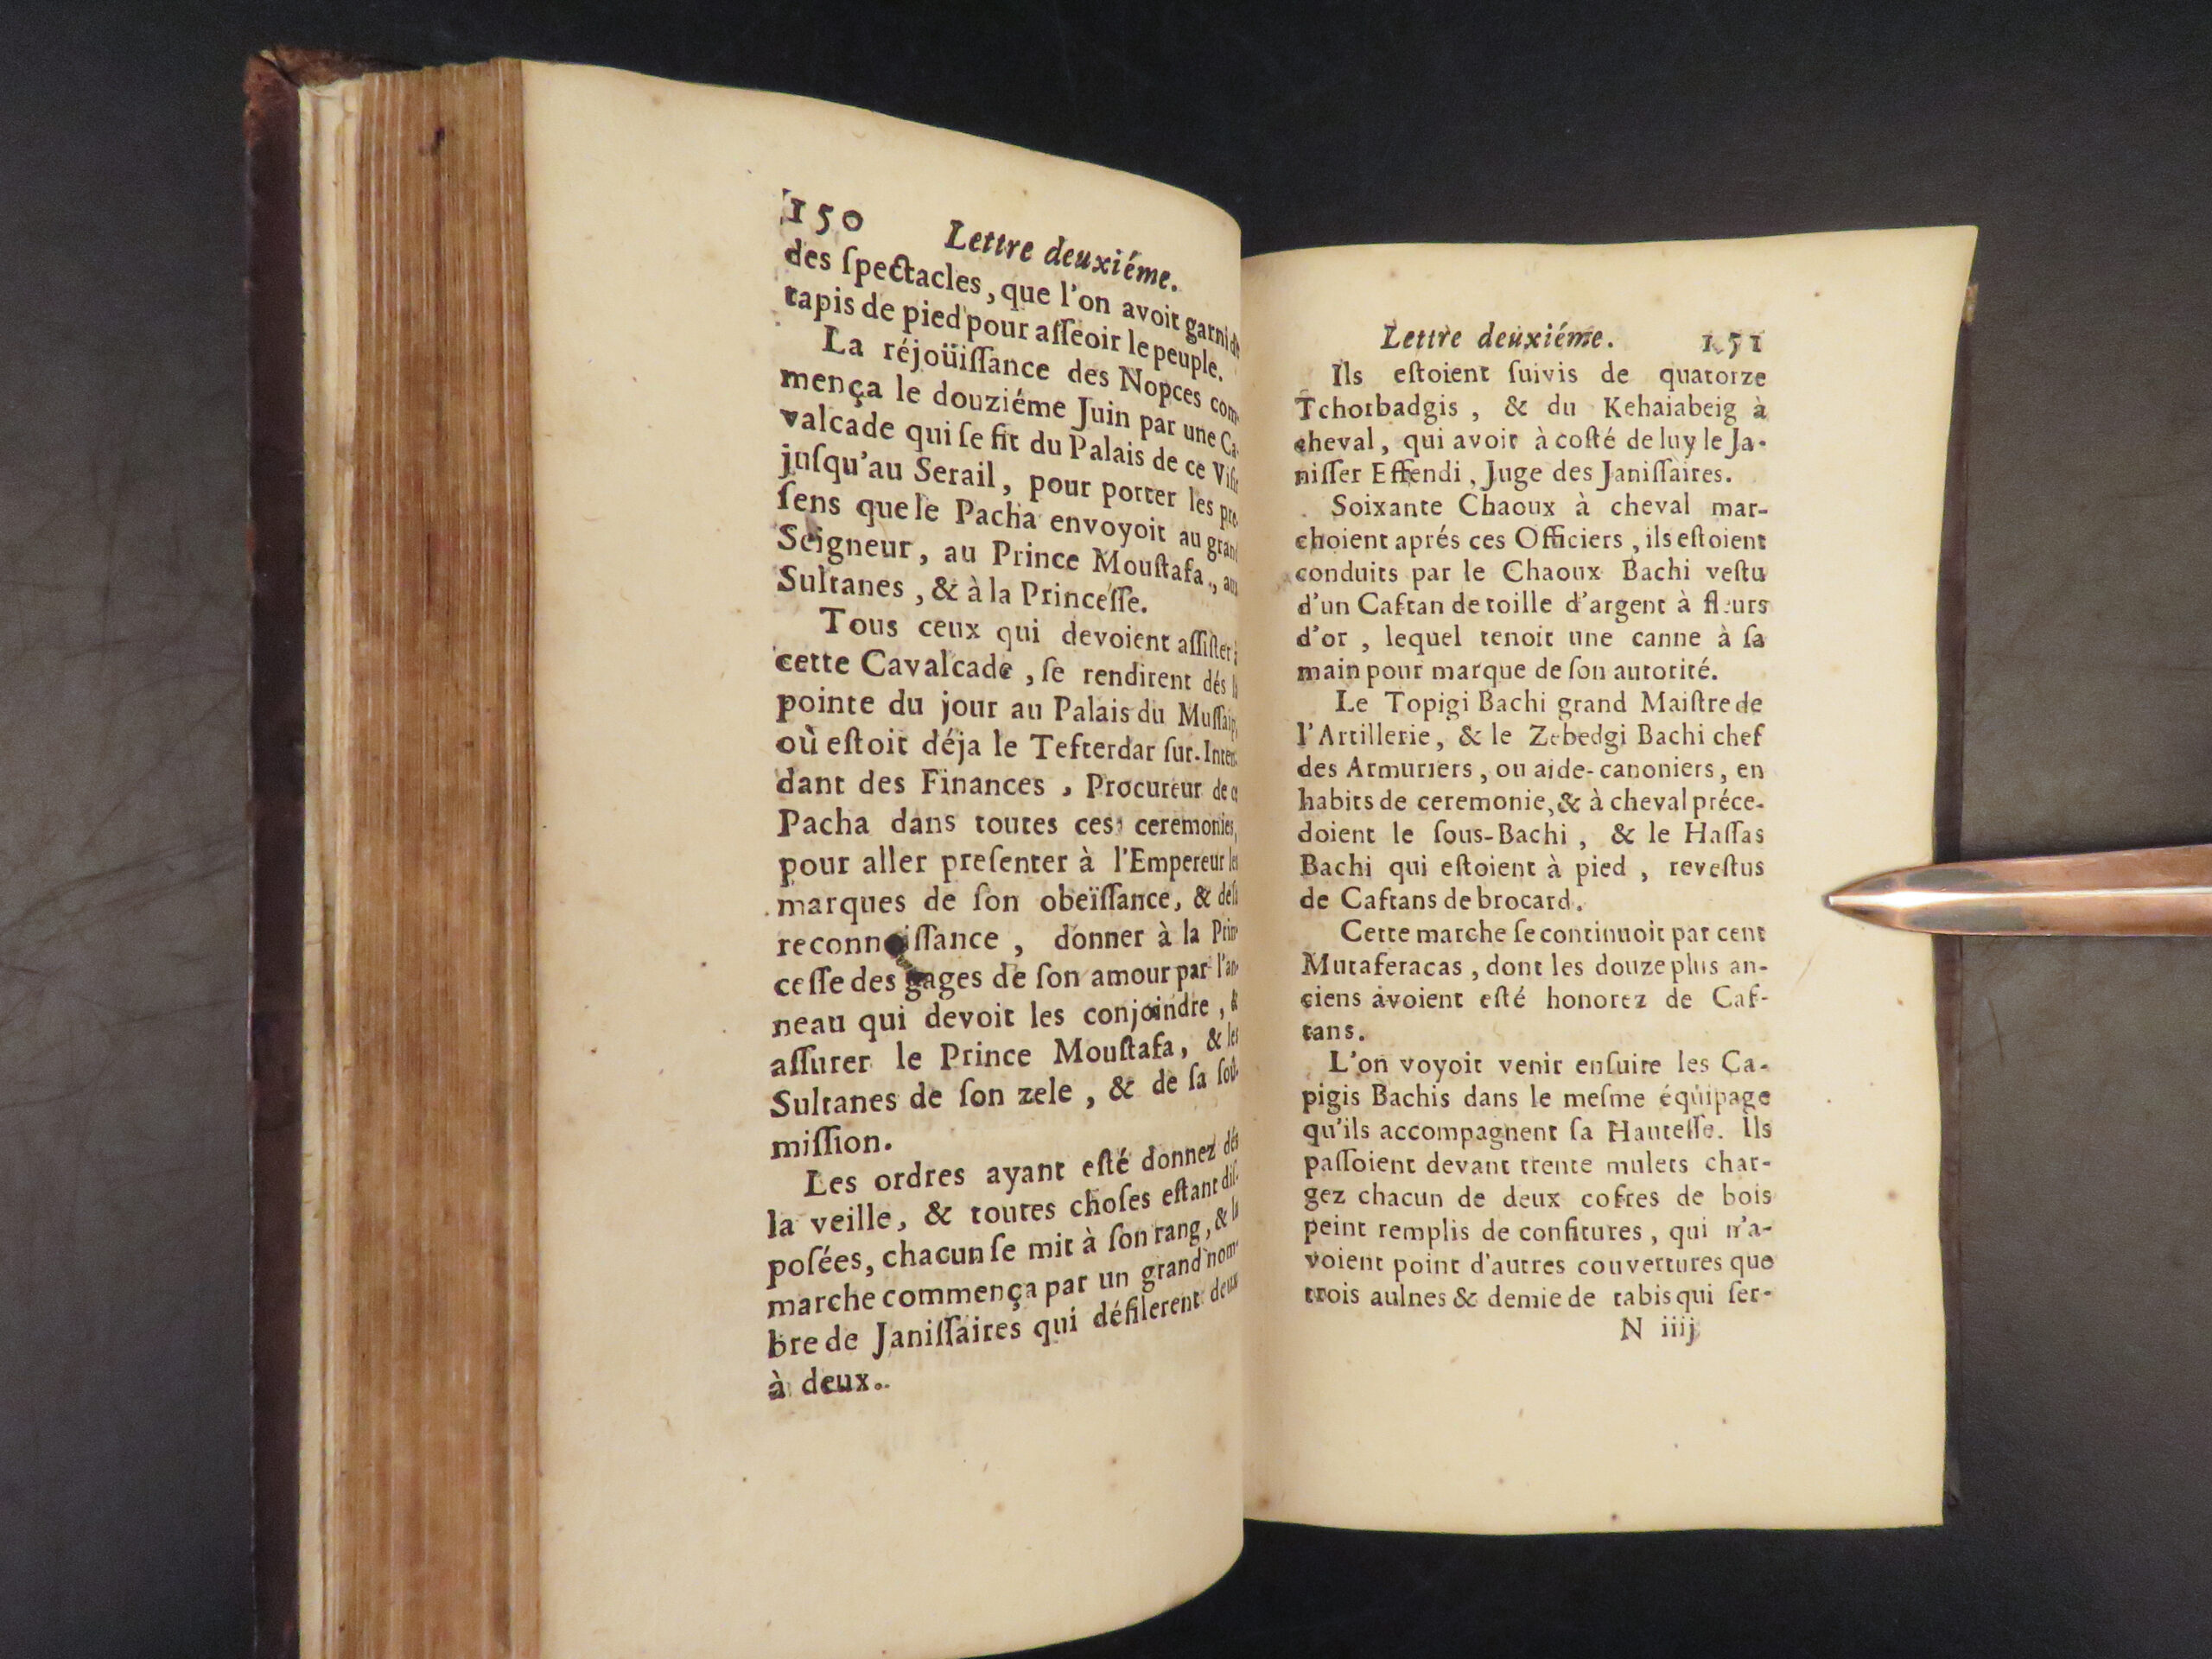 150 Lettre deuxiéme.
des ſpectacles, que l'on avoit garni de
tapis de pied pour aſſeoir le peuple.
La réjoüiſſance des Nopces com-
mença le douziéme Juin par une Ca-
valcade qui ſe fit du Palais de ce Viſir
juſqu'au Serail, pour porter les pre-
ſens que le Pacha envoyoit au grand
Seigneur, au Prince Mouſtafa, aux
Sultanes, & à la Princeſſe.
Tous ceux qui devoient aſſiſter à
cette Cavalcade, ſe rendirent dés la
pointe du jour au Palais du Muſſaip,
où eſtoit déja le Tefterdar ſur-Inten-
dant des Finances, Procureur de ce
Pacha dans toutes ces ceremonies,
pour aller preſenter à l'Empereur les
marques de ſon obeïſſance, & de ſa
reconnoiſſance, donner à la Prin-
ceſſe des gages de ſon amour par l'an-
neau qui devoit les conjoindre, &
aſſurer le Prince Mouſtafa, & les
Sultanes de ſon zele, & de ſa ſoû-
miſſion.
Les ordres ayant eſté donnez dés
la veille, & toutes choſes eſtant diſ-
poſées, chacun ſe mit à ſon rang, & la
marche commença par un grand nom-
bre de Janiſſaires qui défilerent deux
à deux.
Lettre deuxiéme. 151
Ils eſtoient ſuivis de quatorze
Tchorbadgis, & du Kehaiabeig à
cheval, qui avoit à coſté de luy le Ja-
niſſer Effendi, Juge des Janiſſaires.
Soixante Chaoux à cheval mar-
choient aprés ces Officiers, ils eſtoient
conduits par le Chaoux Bachi veſtu
d'un Caftan de toille d'argent à fleurs
d'or, lequel tenoit une canne à ſa
main pour marque de ſon autorité.
Le Topigi Bachi grand Maiſtre de
l'Artillerie, & le Zebedgi Bachi chef
des Armuriers, ou aide-canoniers, en
habits de ceremonie, & à cheval préce-
doient le ſous-Bachi, & le Haſſas
Bachi qui eſtoient à pied, reveſtus
de Caftans de brocard.
Cette marche ſe continuoit par cent
Mutaferacas, dont les douze plus an-
ciens avoient eſté honorez de Caf-
tans.
L'on voyoit venir enſuite les Ca-
pigis Bachis dans le meſme équipage
qu'ils accompagnent ſa Hauteſſe. Ils
paſſoient devant trente mulets char-
gez chacun de deux cofres de bois
peint remplis de confitures, qui n'a-
voient point d'autres couvertures que
trois aulnes & demie de tabis qui ſer-
N iiij